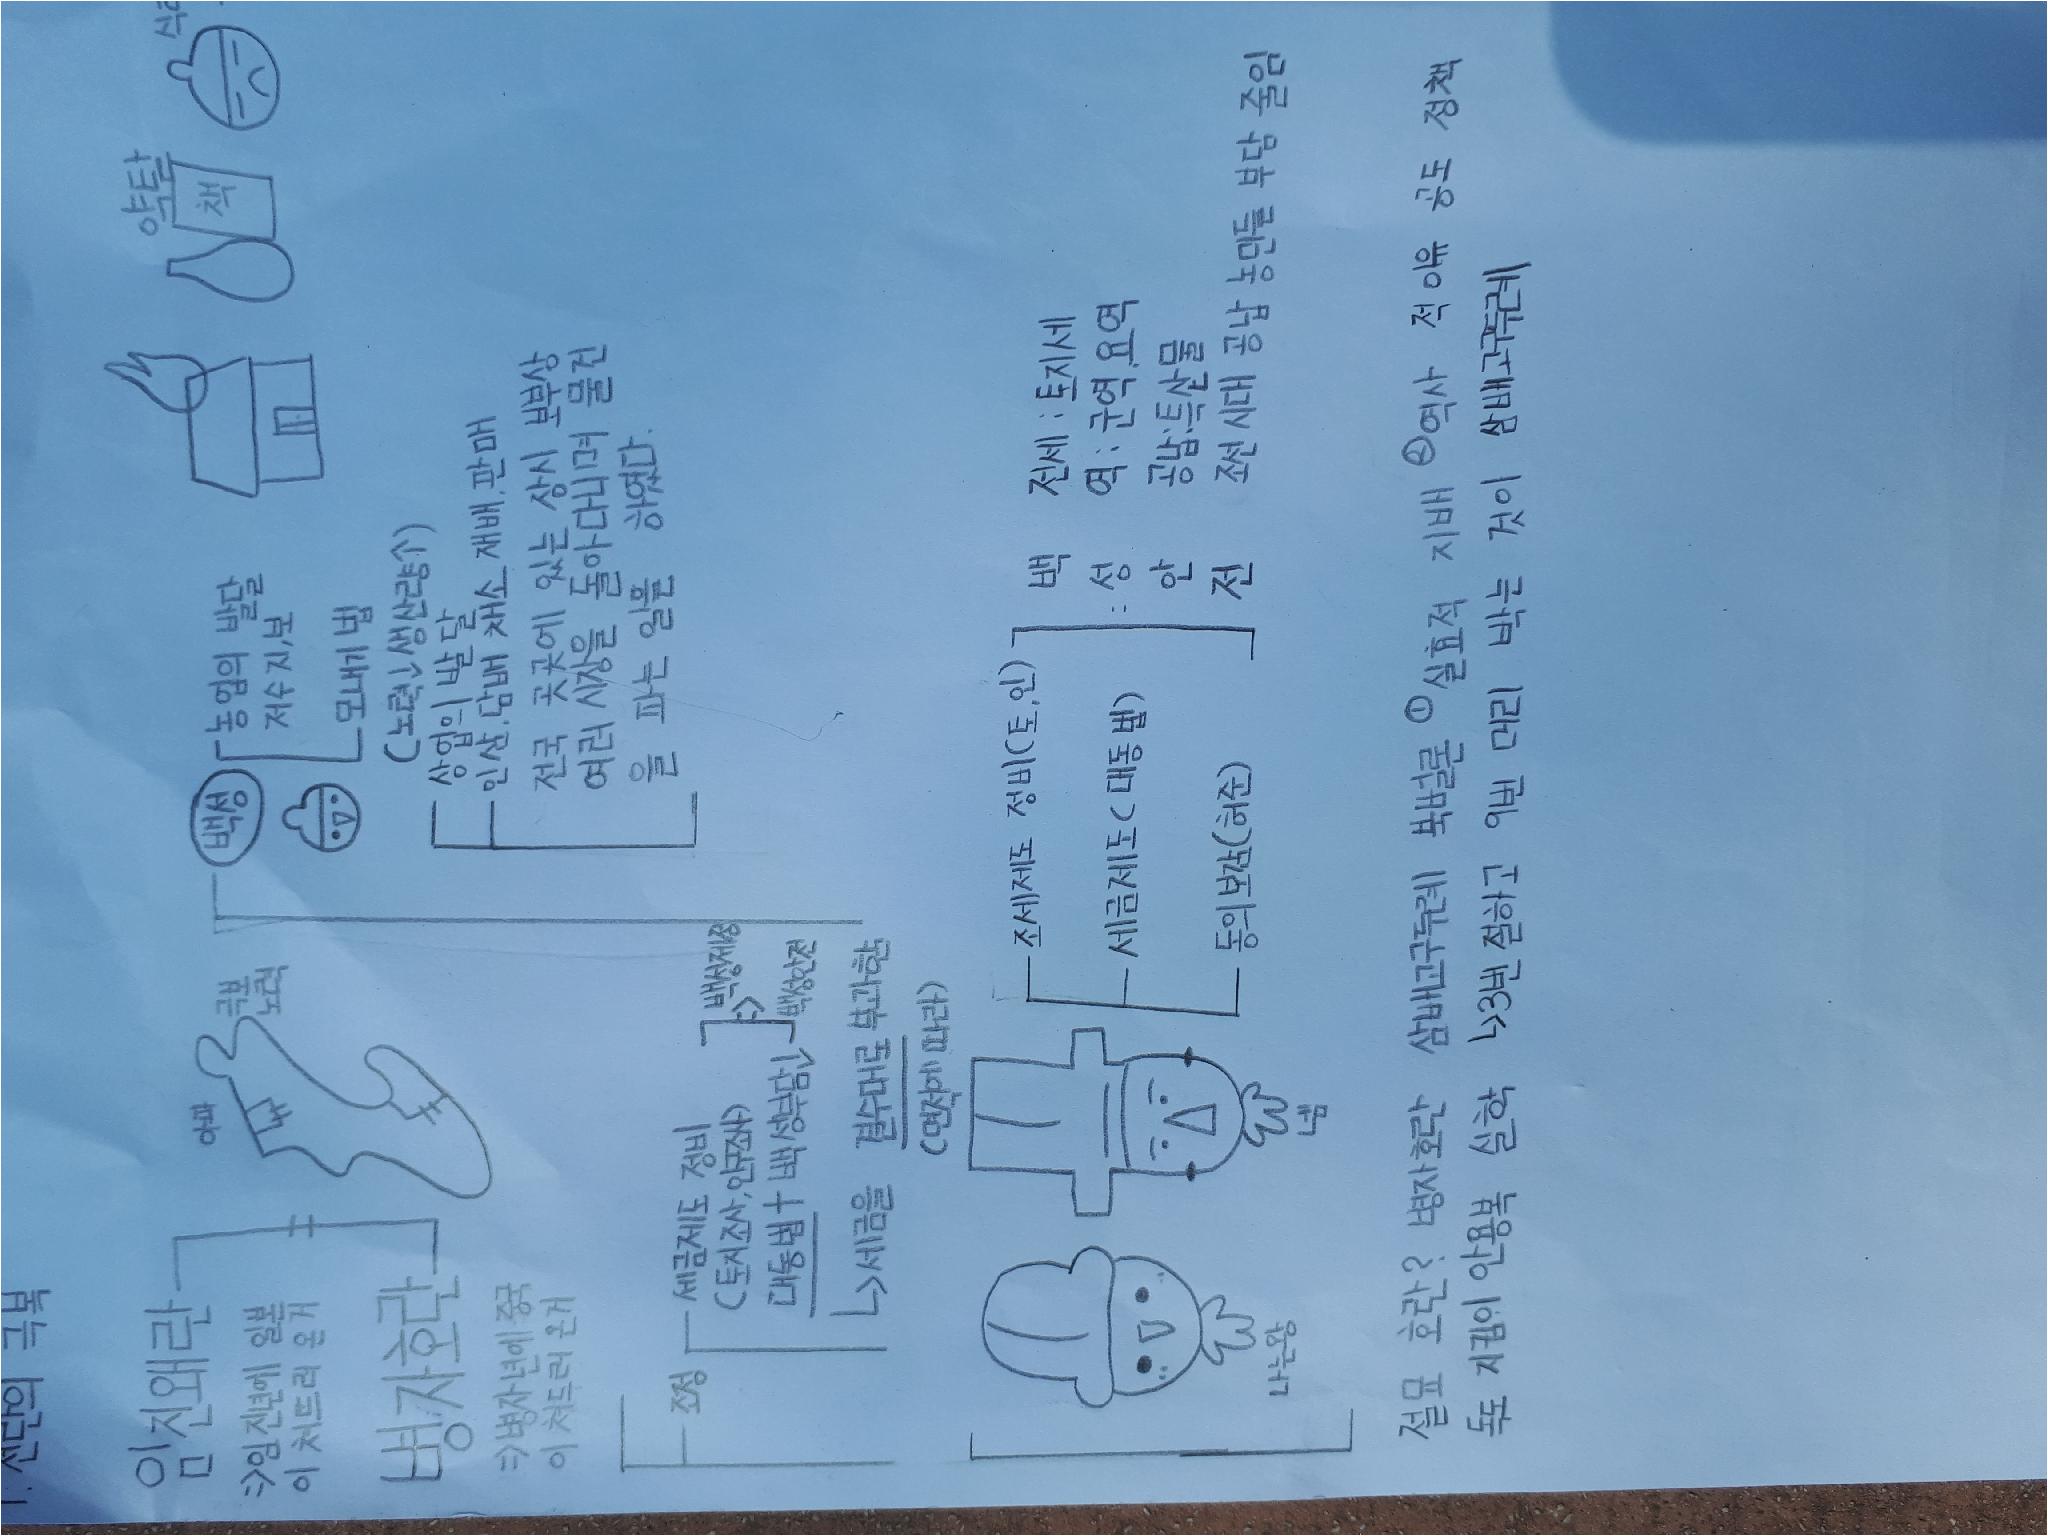 1. 전란의 극복
임진왜란
=>임진년에 일본
이 처드러 온거
병자호란
=>병자년에 중국
이 처드러 온거
아파
극복
노력
약탈
책
백성
농업의 발달
저수지,보
모내기법
(노력↓생산량↑)
상업의 발달
인삼,담배 채소 재배,판매
전국 곳곳에 있는 상시 보부상
여러 시장을 돌아다니며 물건
을 파는 일을 하였다.
조정
세금제도 정비
(토지조사,인구조사)
대동법↑백성부담↓
=>
백성안전
↳세금을 결수대로 부과한
(면적에 따라)
나는왕
넵
조세제도 정비(토,인)
세금제도(대동법)
동의보감(허준)
: 백성안전
전세:토지세
역:군역,요역
공납:특산물
조선시대 공납 농민들 부담 줄임
절묘 호란? 병자호란 삼배고구두례 북벌론 ①실효적 지배 ②역사 적이유 공도 정책
독도 지킴이 안용복 실학 ↳3번 절하고 9번 머리 박는 것이 삼배고구두례